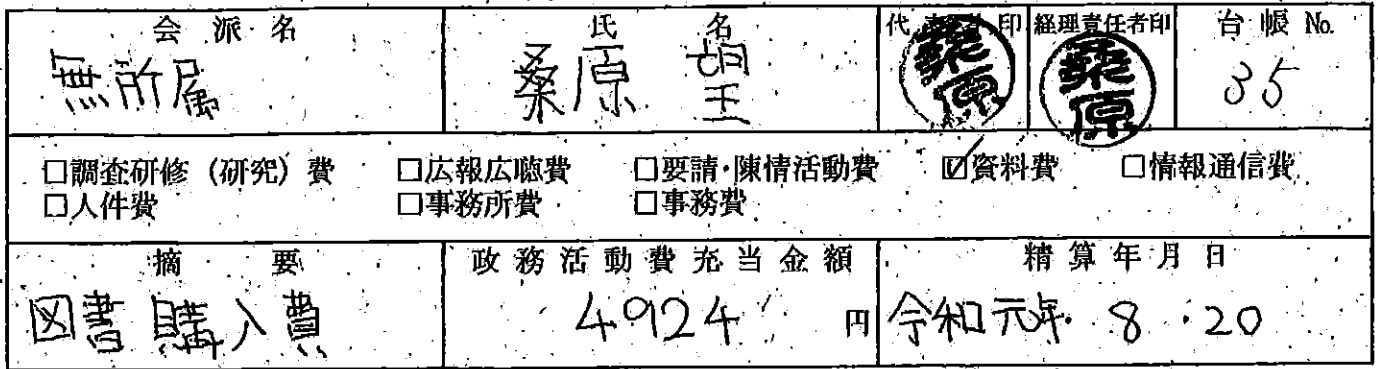 会派名 氏名 代表者印 経理責任者印 台帳 No.
無所属 桑原 望 桑原 桑原 35
□調査研修(研究)費 □広報広聴費 □要請・陳情活動費 ☑資料費 □情報通信費
□人件費 □事務所費 □事務費
摘要 政務活動費充当金額 精算年月日
図書購入費 4924 円 令和元年 8・20